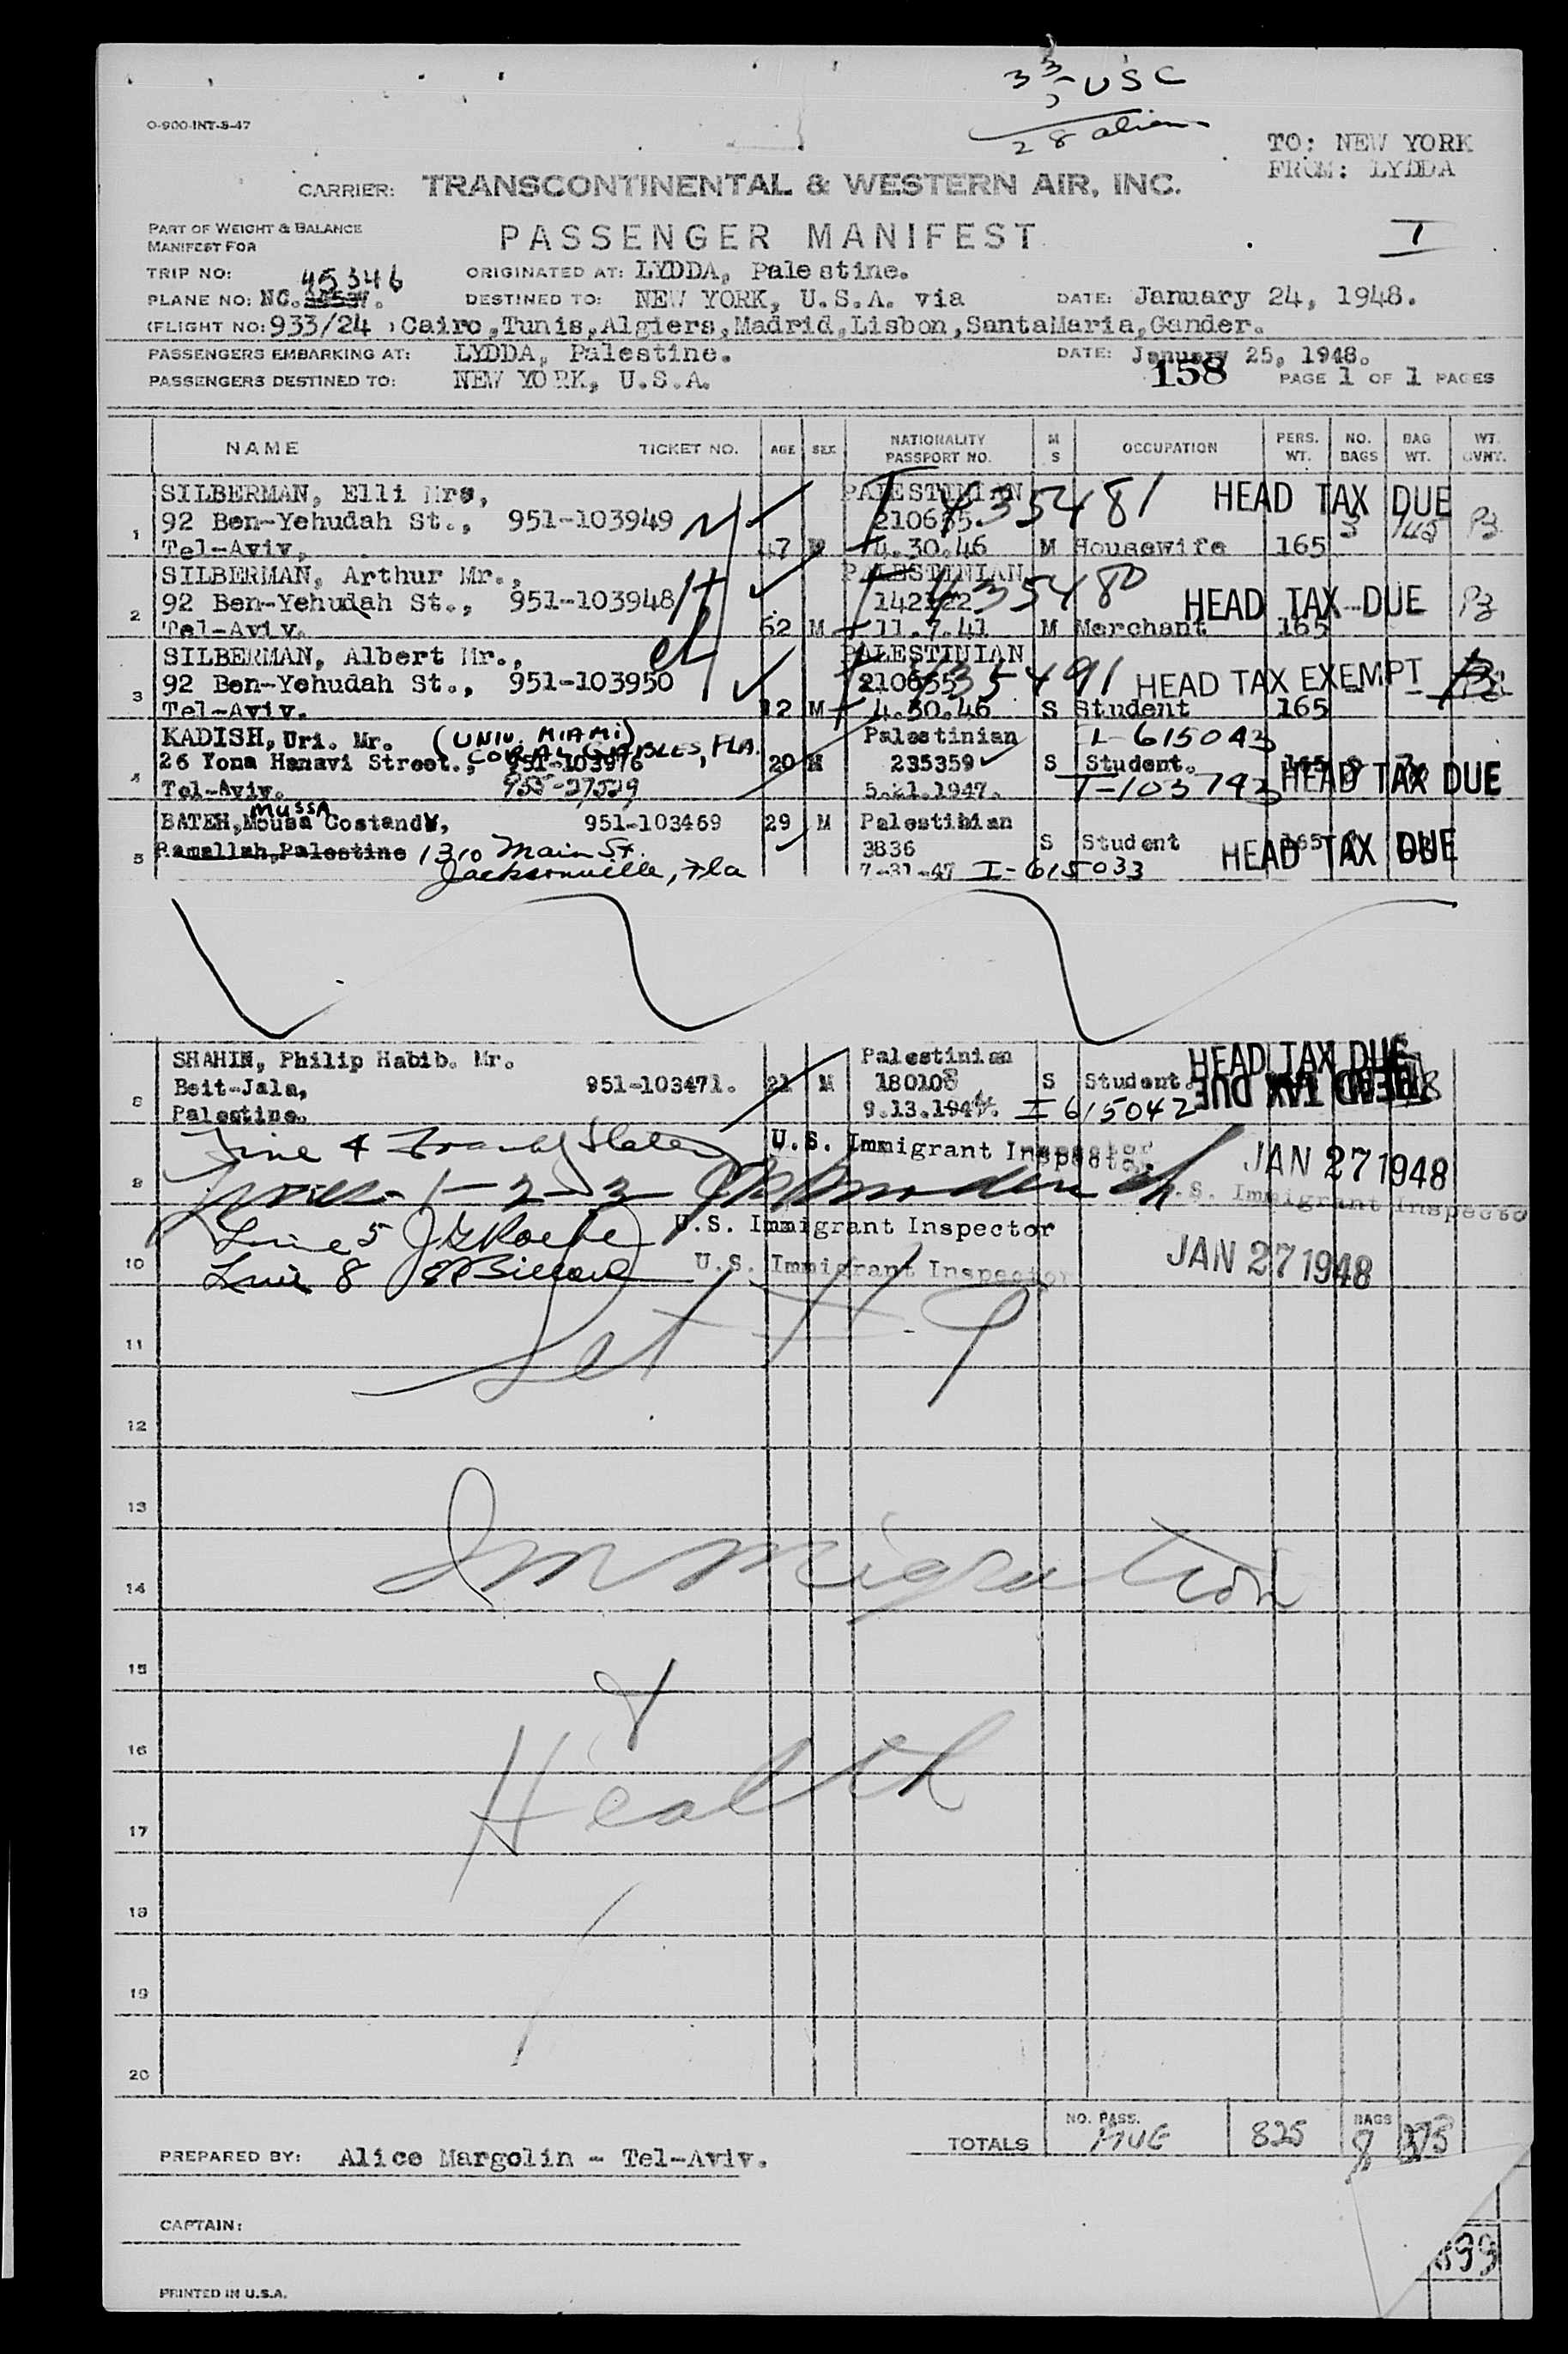 33
5 USC
28 aliens
O-900-INT-8-47
TO: NEW YORK
FROM: LYDDA
CARRIER: TRANSCONTINENTAL & WESTERN AIR, INC.
PART OF WEIGHT & BALANCE
MANIFEST FOR
PASSENGER MANIFEST
I
TRIP NO: 45346
ORIGINATED AT: LYDDA, Palestine.
PLANE NO: NC.
DESTINED TO: NEW YORK, U.S.A. via
DATE: January 24, 1948.
(FLIGHT NO: 933/24 ) Cairo,Tunis,Algiers,Madrid,Lisbon,SantaMaria,Gander.
PASSENGERS EMBARKING AT: LYDDA, Palestine.
DATE: January 25, 1948.
PASSENGERS DESTINED TO: NEW YORK, U.S.A.
158
PAGE 1 OF 1 PAGES
NAME TICKET NO. AGE SEX NATIONALITY PASSPORT NO. M S OCCUPATION PERS. WT. NO. BAGS BAG WT. WT. OVNT.
SILBERMAN, Elli Mrs, PALESTINIAN HEAD TAX DUE
92 Ben-Yehudah St., 951-103949 T 435481
1 Tel-Aviv, 47 4.30.46 M Housewife 165 3
SILBERMAN, Arthur Mr., PALESTINIAN
92 Ben-Yehudah St., 951-103948 142122 435480 HEAD TAX DUE
2 Tel-Aviv. 62 M 11.7.41 M Merchant 165
SILBERMAN, Albert Mr., PALESTINIAN
92 Ben-Yehudah St., 951-103950 435491 HEAD TAX EXEMPT
3 Tel-Aviv. 12 M 4.30.46 S Student 165
KADISH, Uri. Mr. (UNIV. MIAMI) Palestinian I-615043
26 Yona Hanavi Street., CORAL GABLES, FLA. 951-103976 20 M 235359 S Student.
4 Tel-Aviv. 955-27529 5.21.1947. T-103793 HEAD TAX DUE
MUSSA
BATEH, Mousa Costandy, 951-103469 29 M Palestinian
Ramallah,Palestine 1310 Main St. 3836 S Student 165 HEAD TAX DUE
5 Jacksonville, Fla 7-31-47 I-615033
SHAHIN, Philip Habib. Mr. Palestinian HEAD TAX DUE
Beit-Jala, 951-103471. 21 M 180108 S Student. HEAD TAX DUE
8 Palestine. 9.13.1947. I 615042
Line 4
U.S. Immigrant Inspector
JAN 27 1948
9 Lines - 1-2-3
U.S. Immigrant Inspector
Line 5 U.S. Immigrant Inspector
10 Line 8 U.S. Immigrant Inspector
JAN 27 1948
Set # 9
11
12
13
Immigration
14
15
&
16
Health
17
18
19
20
TOTALS NO. PASS. FIVE 825 BAGS 8
PREPARED BY: Alice Margolin - Tel-Aviv.
CAPTAIN:
899
PRINTED IN U.S.A.